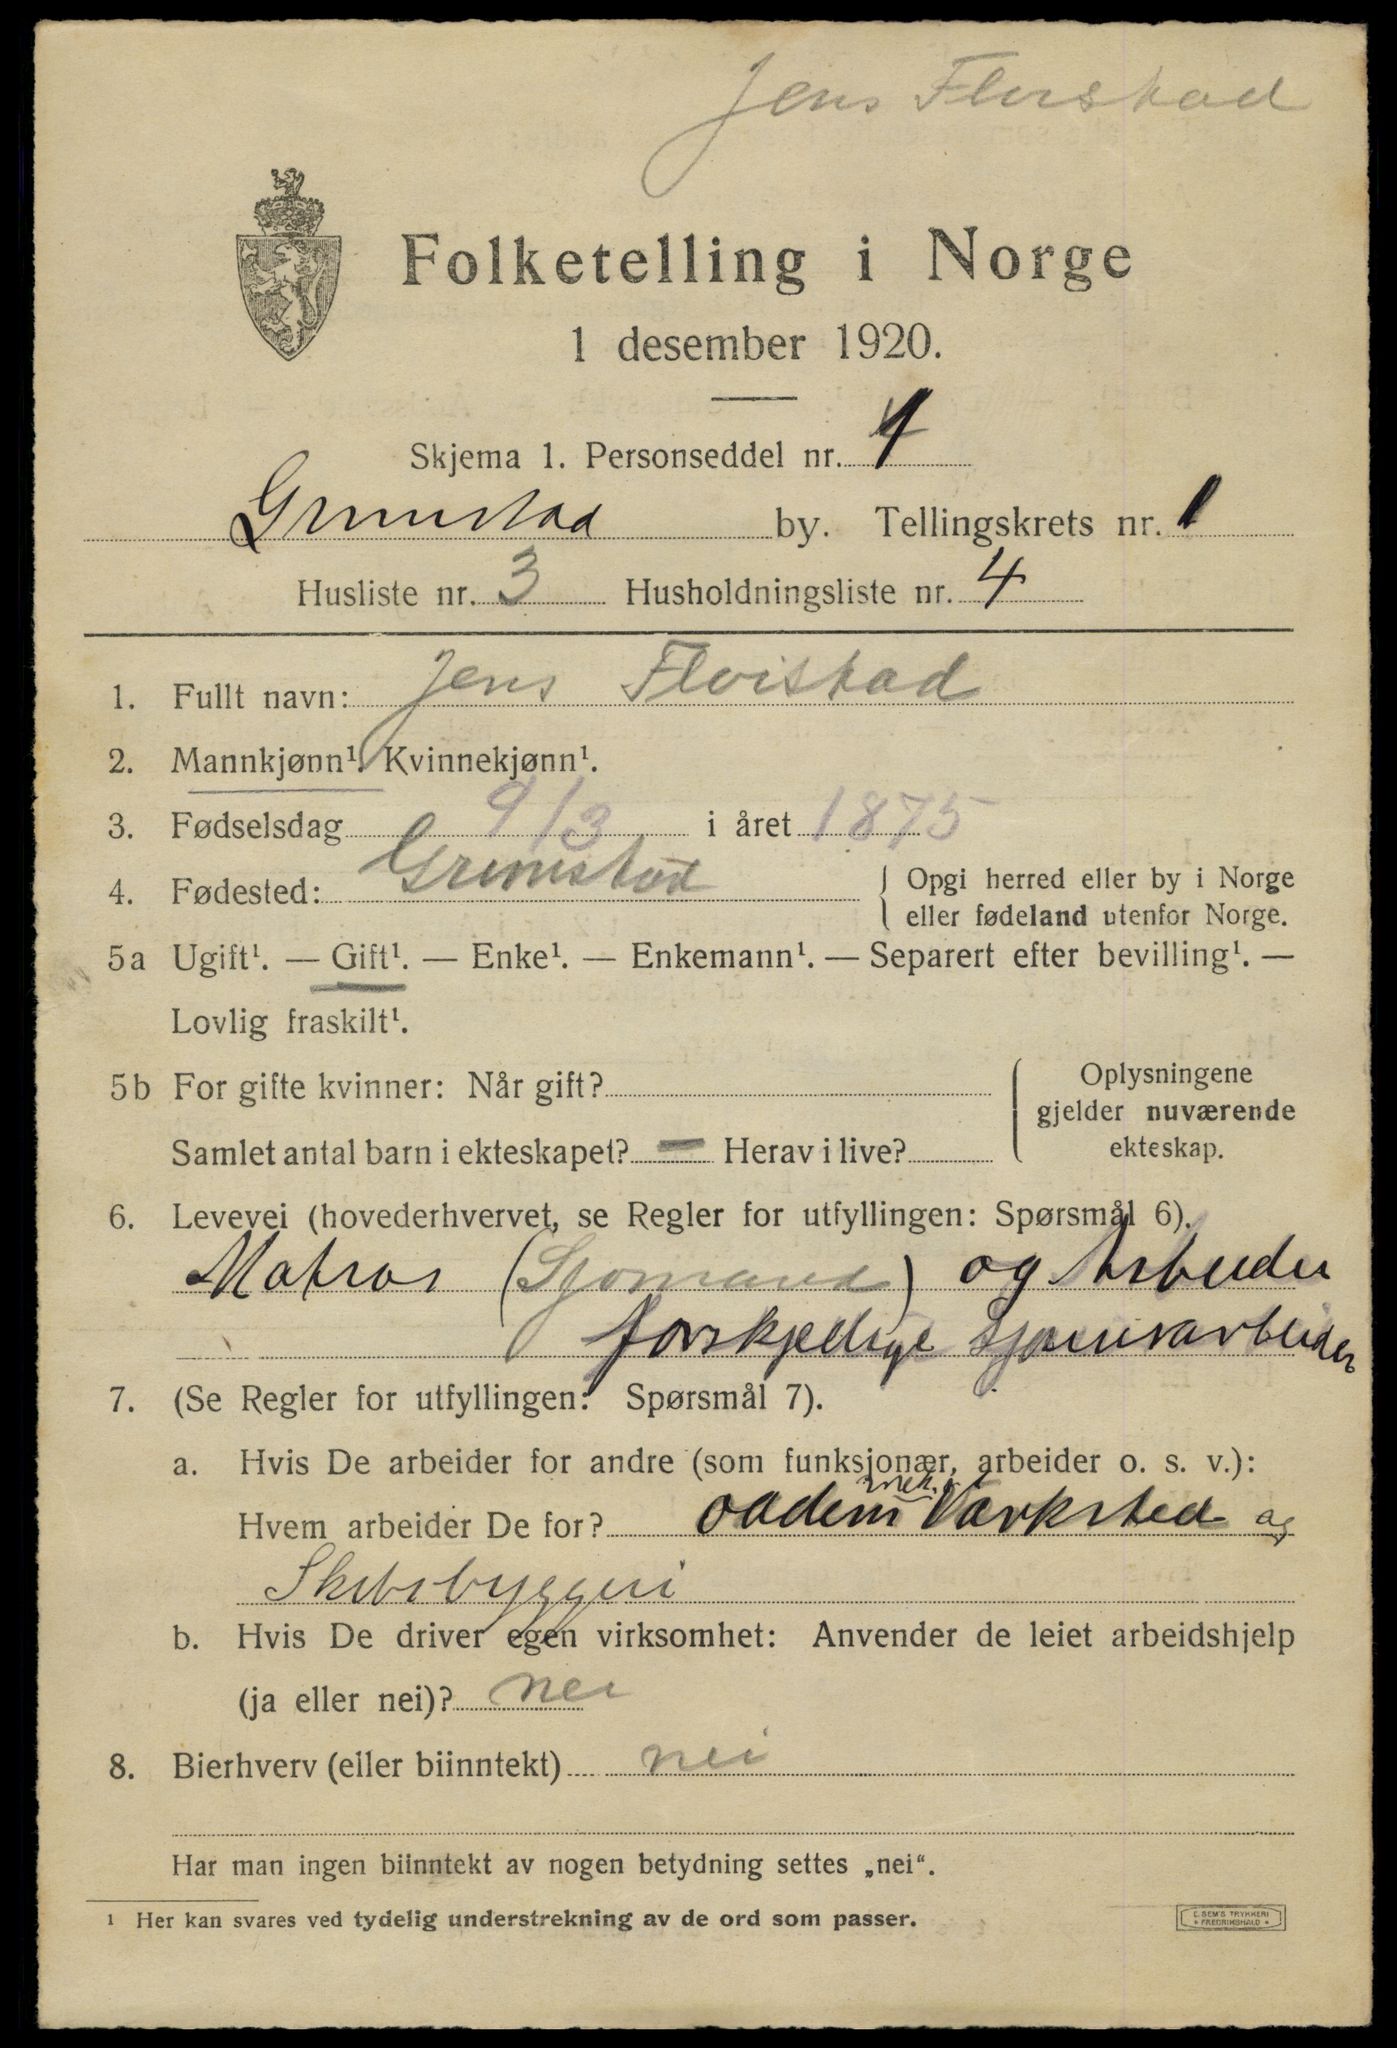 Jens Flvistad
Folketelling i Norge
1 desember 1920.
Skjema 1. Personseddel nr. 1
Grimstad by. Tellingskrets nr. 1
Husliste nr. 3 Husholdningsliste nr. 4
1. Fullt navn: Jens Fløistad
2. Mannkjønn¹. Kvinnekjønn¹.
3. Fødselsdag 9/3 i året 1875
4. Fødested: Grimstad { Opgi herred eller by i Norge
eller fødeland utenfor Norge.
5a Ugift¹. — Gift¹. — Enke¹. — Enkemann¹. — Separert efter bevilling¹. —
Lovlig fraskilt¹.
5b For gifte kvinner: Når gift? { Oplysningene
gjelder nuværende
Samlet antal barn i ekteskapet? — Herav i live? ekteskap.
6. Levevei (hovederhvervet, se Regler for utfyllingen: Spørsmål 6).
Matros (Sjømand) og Arbeider
forskjellige
7. (Se Regler for utfyllingen: Spørsmål 7).
a. Hvis De arbeider for andre (som funksjonær, arbeider o. s. v.):
mek.
Hvem arbeider De for? Værksted og
Skibsbyggeri
b. Hvis De driver egen virksomhet: Anvender de leiet arbeidshjelp
(ja eller nei)? nei
8. Bierhverv (eller biinntekt) nei
Har man ingen biinntekt av nogen betydning settes „nei“.
¹ Her kan svares ved tydelig understrekning av de ord som passer.
E. SEM'S TRYKKERI
* FREDRIKSHALD *